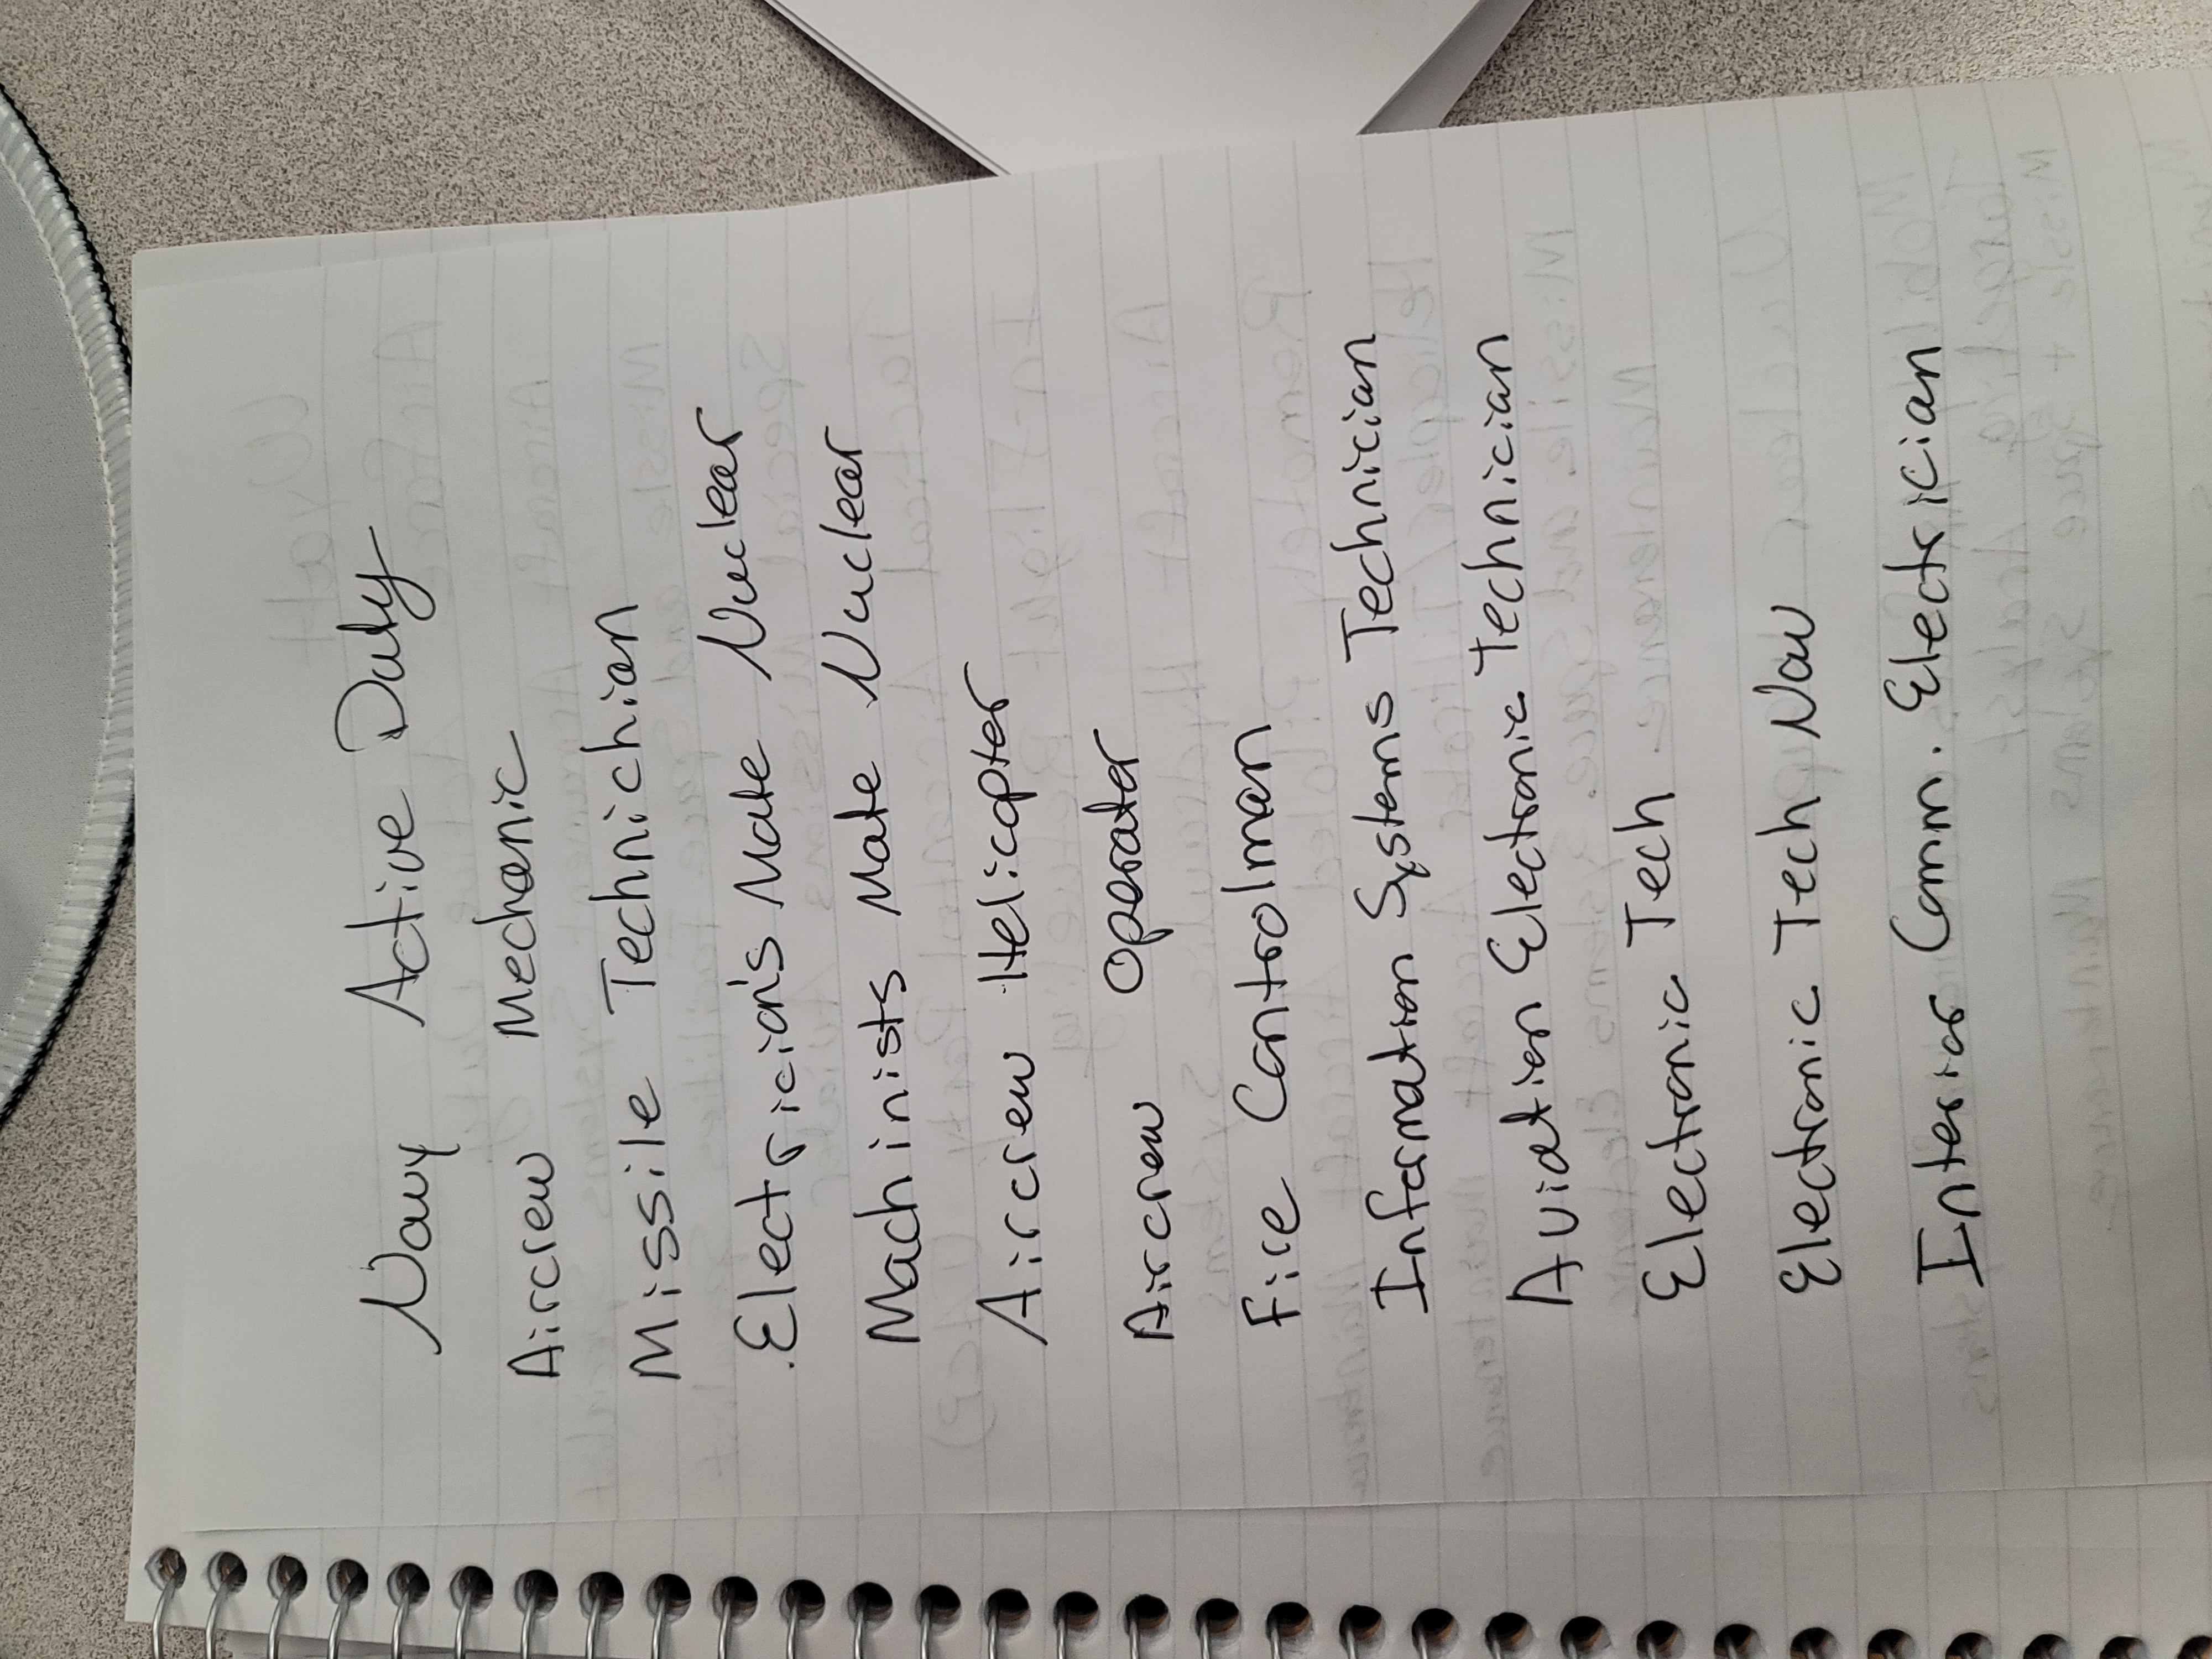 Navy Active Duty
Aircrew Mechanic
Missile Technichian
Electrician's Mate Nuclear
Machinists Mate Nuclear
Aircrew Helicopter
Aircrew Operater
Fire Controlman
Information Systems Technician
Aviation Electronic Technician
Electronic Tech
Electronic Tech Nav
Interior Comm. Electrician